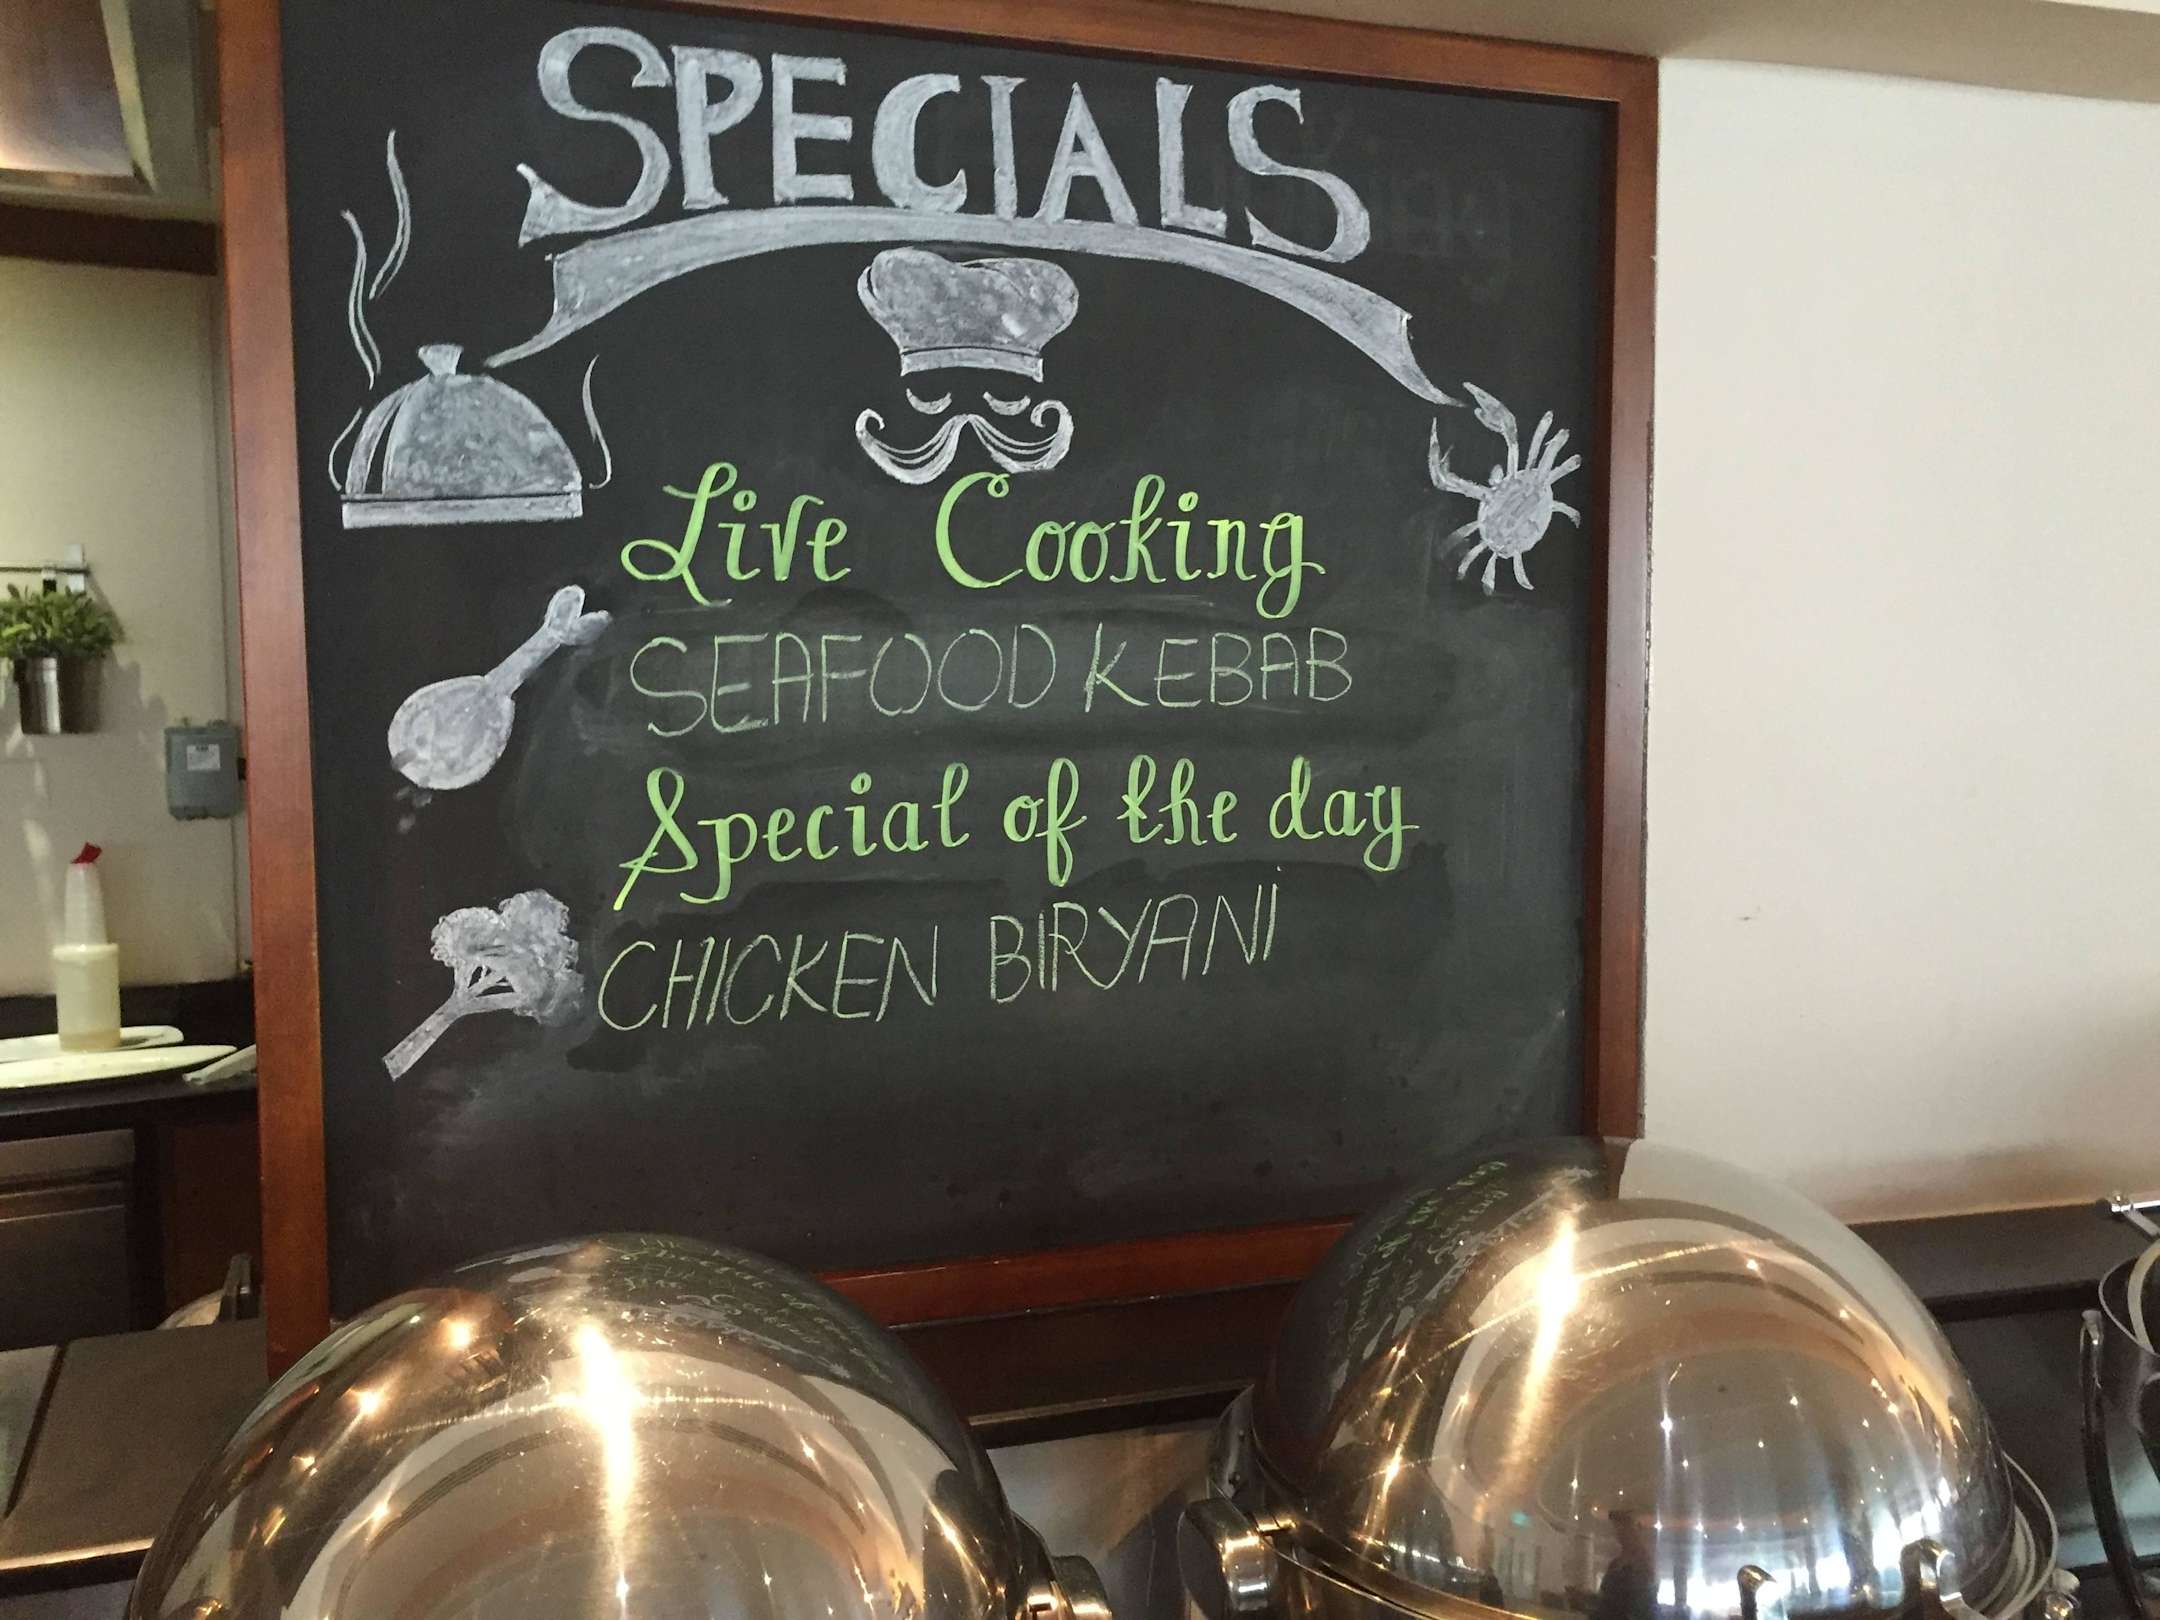 SPECIALS
Live Cooking
SEAFOOD KEBAB
Special of the day
CHICKEN BIRYANi